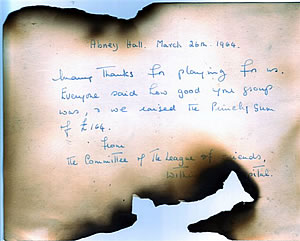 Abney Hall. March 26th. 1964.
Many Thanks for playing for us.
Everyone said how good your group
was, & we raised the Princely Sum
of £164.
from
the Committee of The League of Friends,